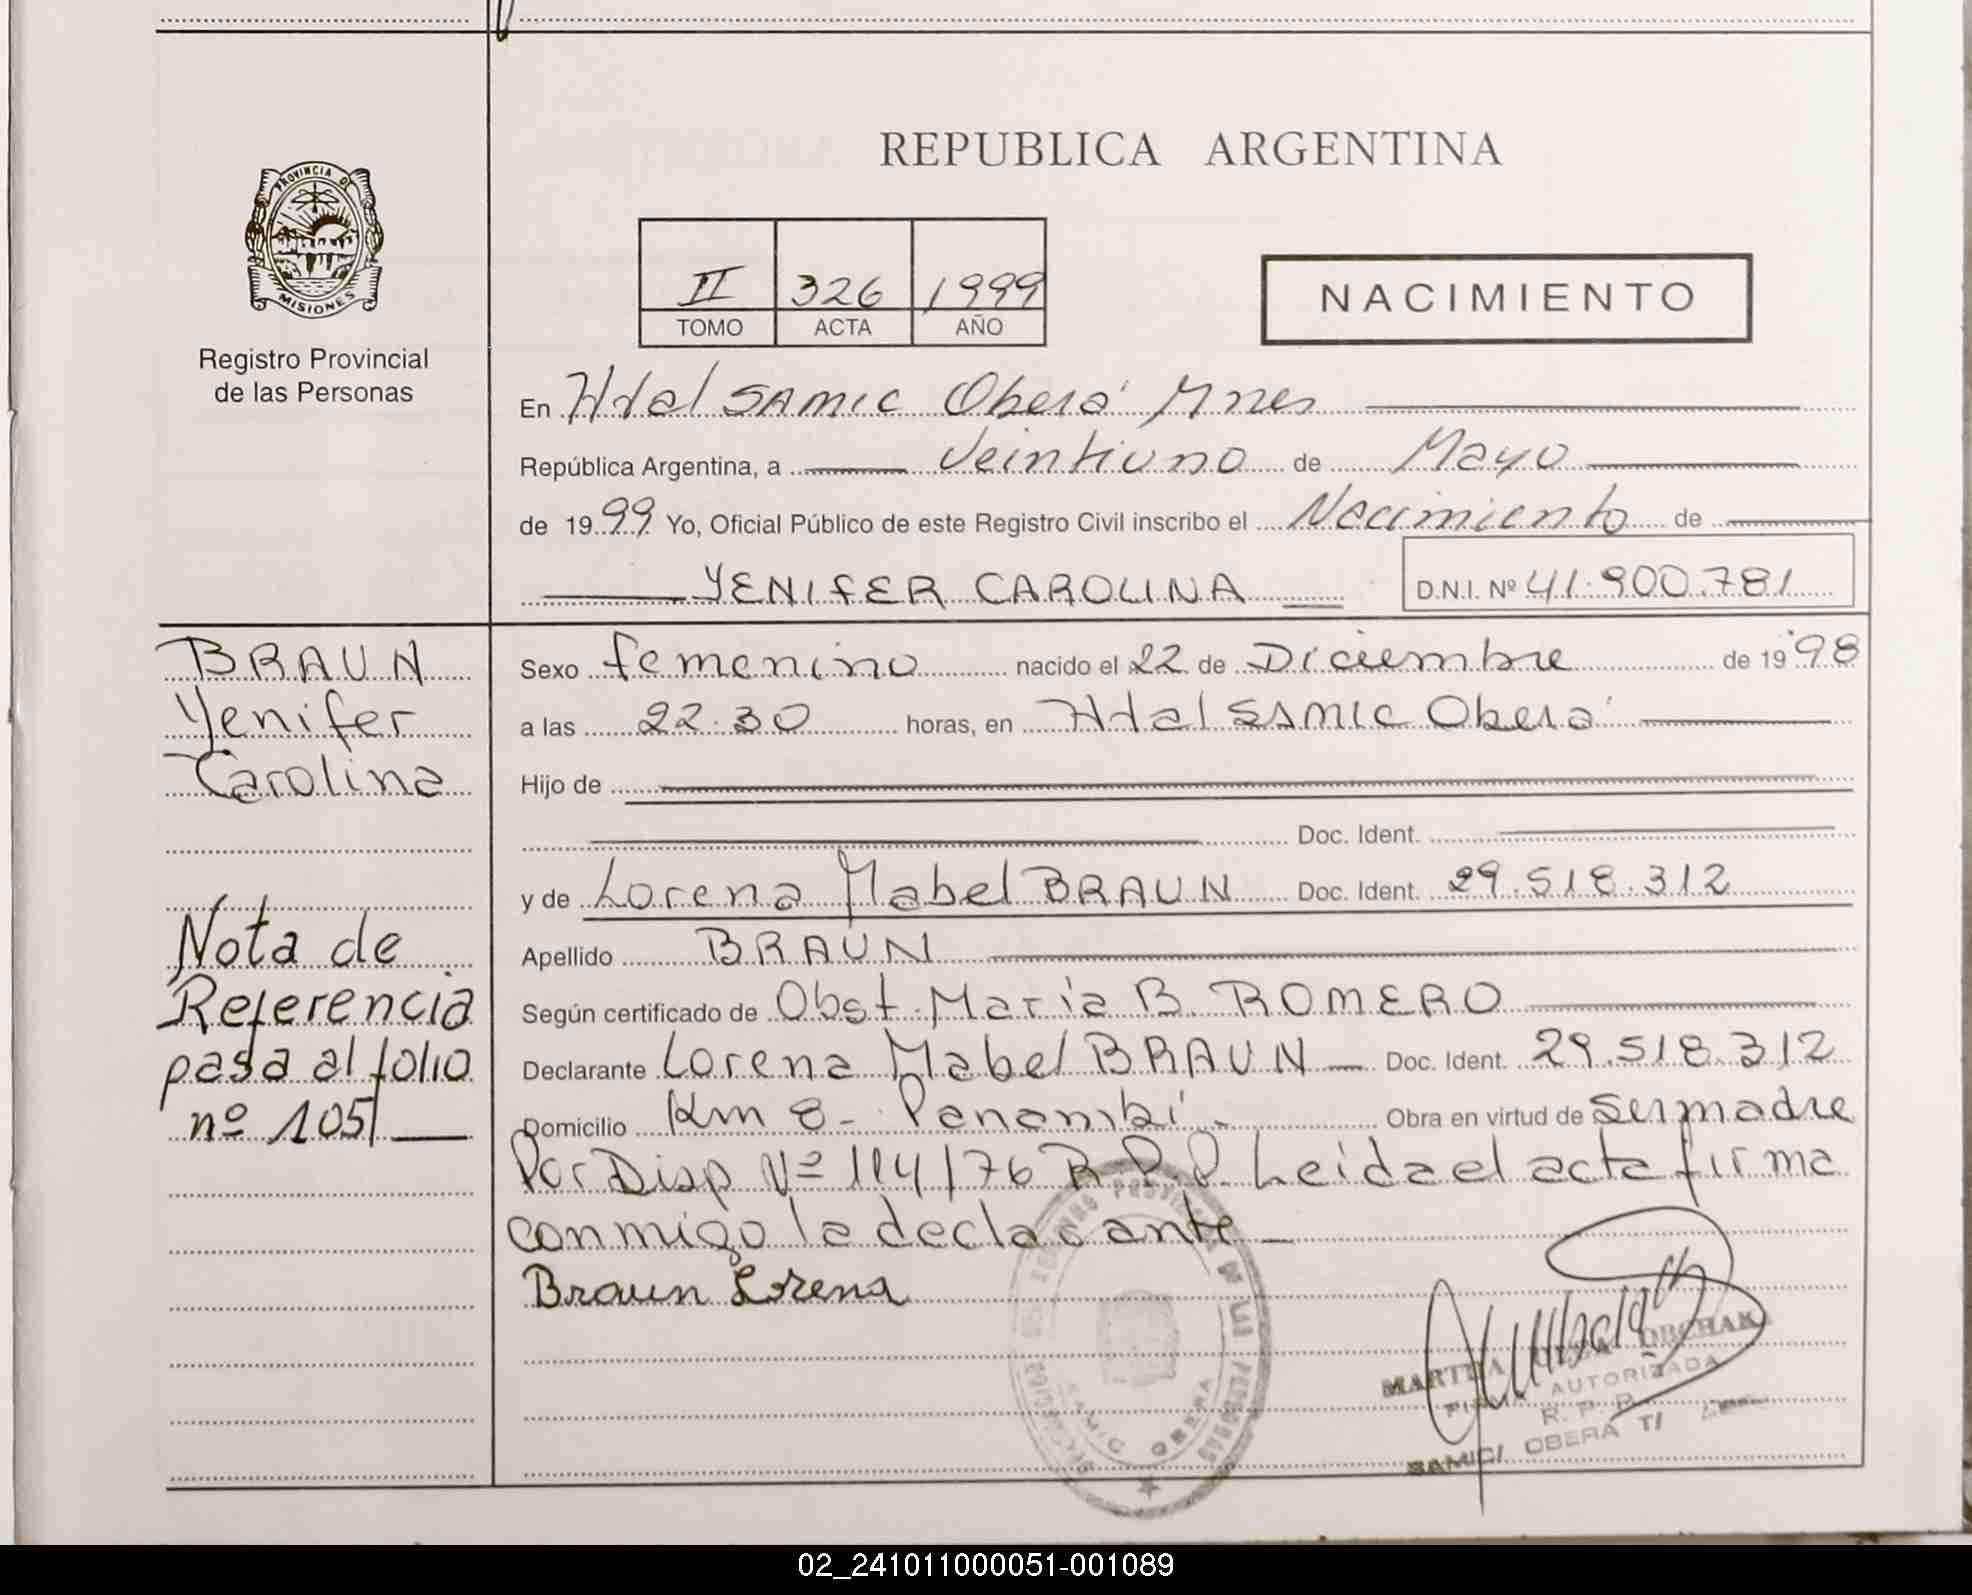 REPUBLICA ARGENTINA
PROVINCIA DE
MISIONES
Registro Provincial
de las Personas
II 326 1999
TOMO ACTA AÑO
NACIMIENTO
En Hdal SAMIC Oberá Mnes
República Argentina, a Veintiuno de Mayo
de 1999 Yo, Oficial Público de este Registro Civil inscribo el Nacimiento de
YENIFER CAROLINA D.N.I. Nº 41.900.781
BRAUN
Yenifer
Carolina
Nota de
Referencia
pasa al folio
nº 105
Sexo femenino nacido el 22 de Diciembre de 1998
a las 22.30 horas, en Hdal SAMIC Oberá
Hijo de
Doc. Ident.
y de Lorena Mabel BRAUN Doc. Ident. 29.518.312
Apellido BRAUN
Según certificado de Obst. María B. ROMERO
Declarante Lorena Mabel BRAUN Doc. Ident. 29.518.312
Domicilio Km 8 - Panambí - Obra en virtud de ser madre
Por Disp Nº 114/76 R.P.P. Leida el acta firma
conmigo la declarante
Braun Lorena
SAMIC OBERA
MARTHA ORCHAK
FIRMA AUTORIZADA
R. P. P.
SAMIC/ OBERA T/
02_241011000051-001089